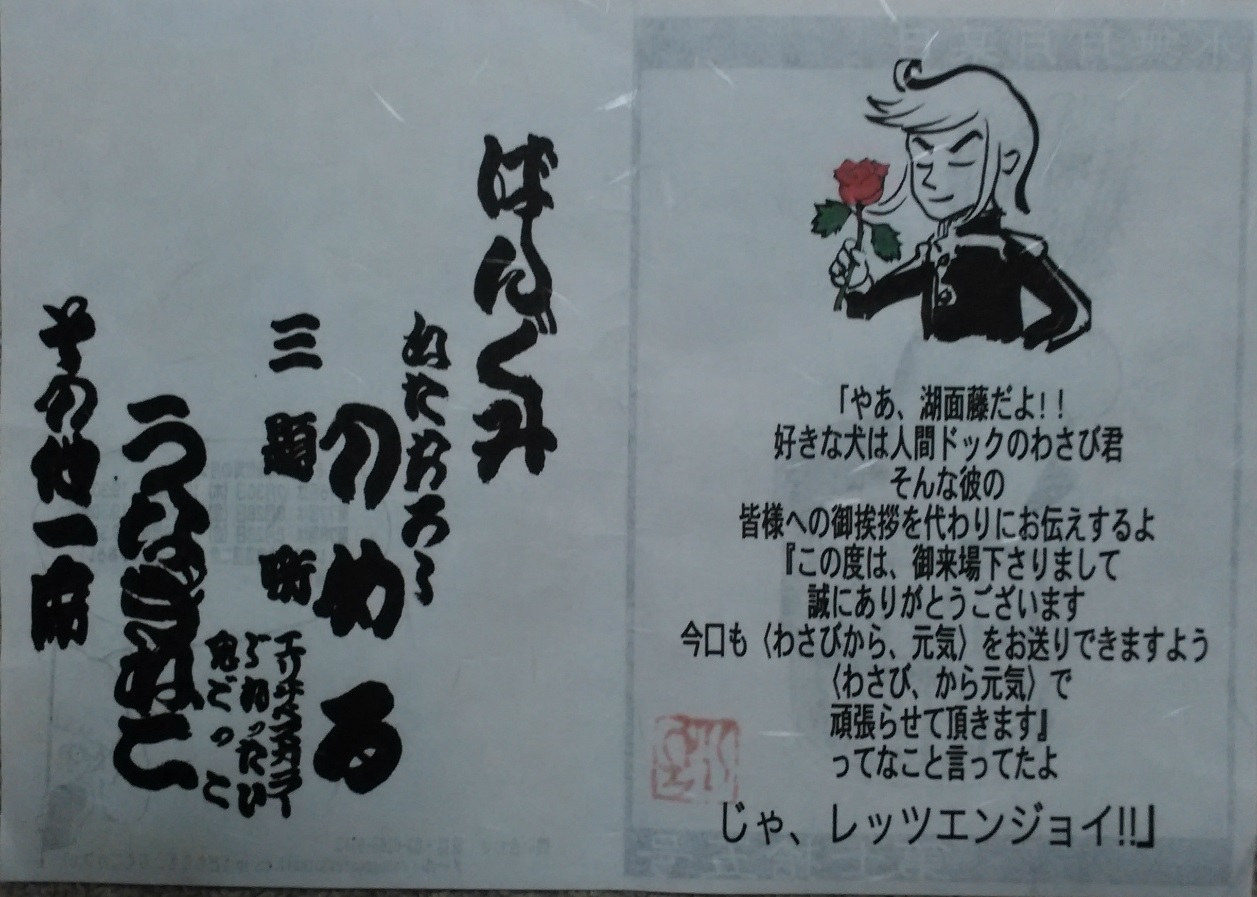 「やあ、湖面藤だよ！！
好きな犬は人間ドックのわさび君
そんな彼の
皆様への御挨拶を代わりにお伝えするよ
『この度は、御来場下さりまして
誠にありがとうございます
今日も〈わさびから、元気〉をお送りできますよう
〈わさび、から元気〉で
頑張らせて頂きます』
ってなこと言ってたよ
じゃ、レッツエンジョイ!!」
ばんぐみ
ねたおろし
のめる
三題噺
エリザベスカラー
じれったい
鬼ごっこ
うなぎねこ
その他一席